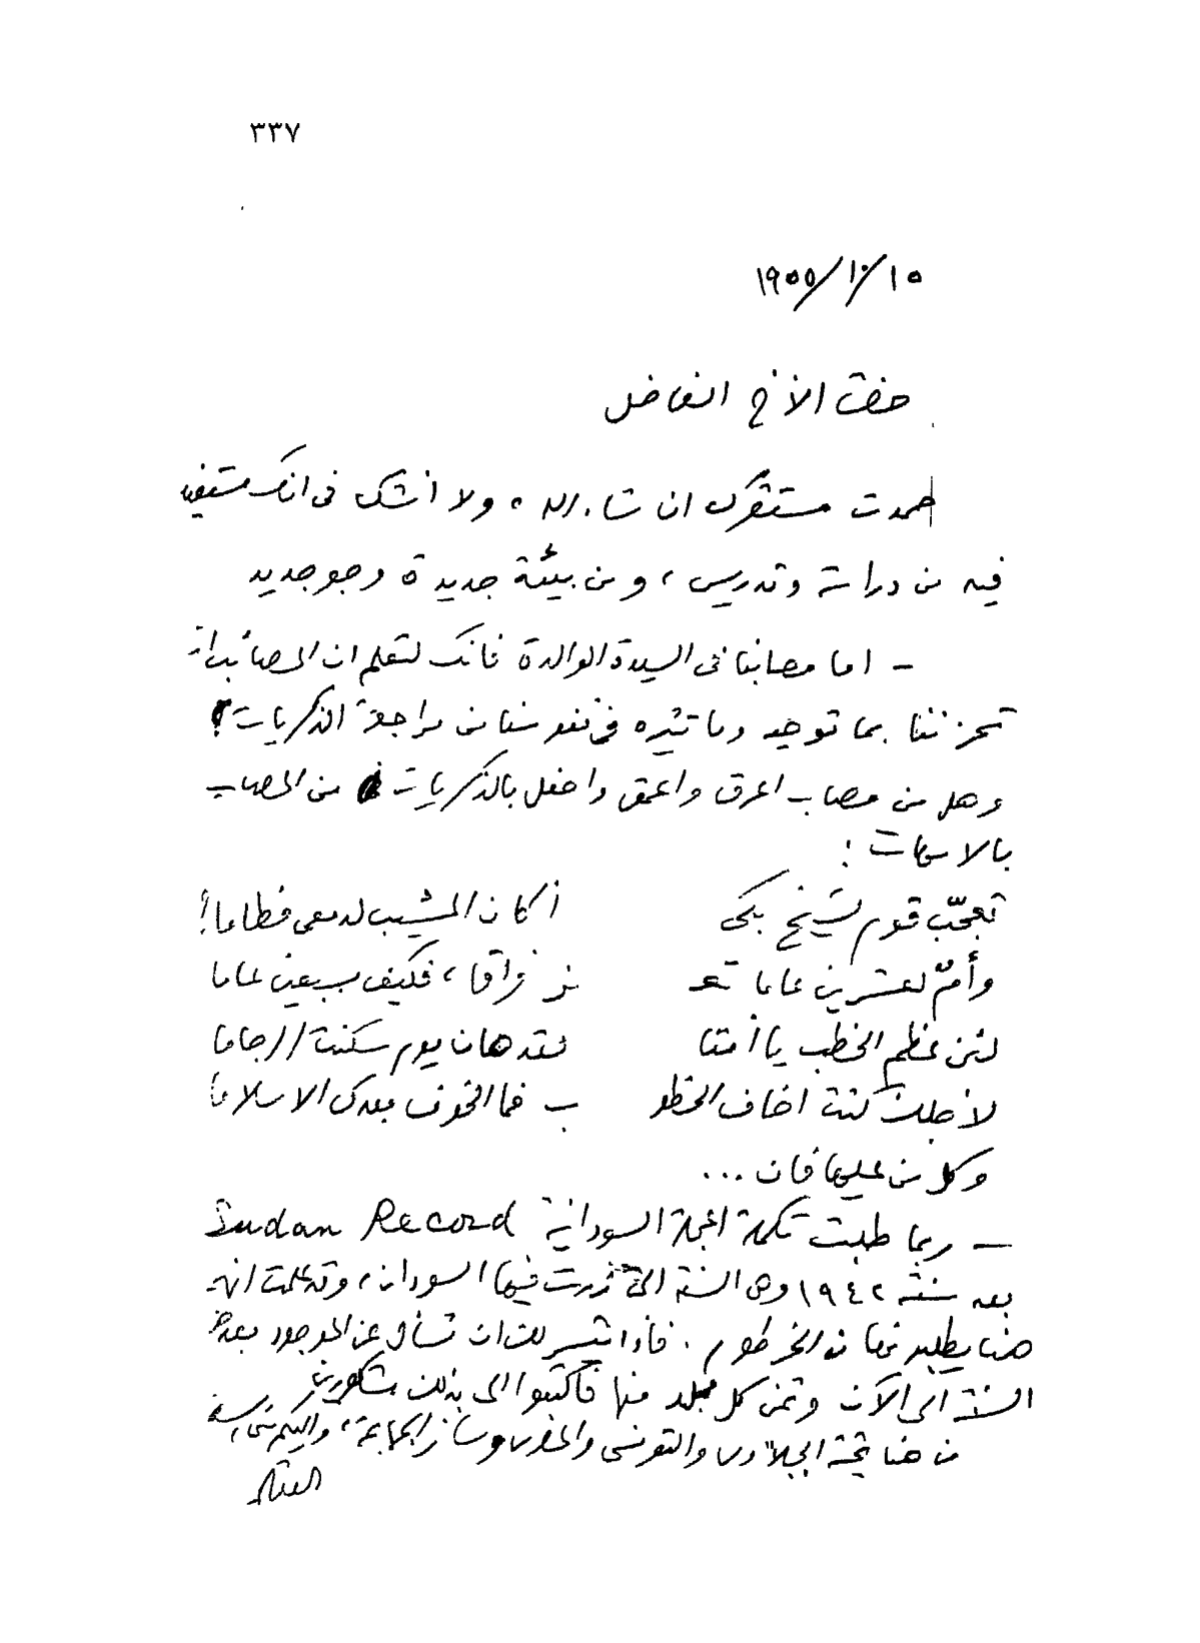 ٣٣٧
١٩٥٥/١٠/١٥
حضرة الأخ الفاضل
حمدت مستقرك ان شاء الله ، ولا أشك فى انك مستفيد
فيه من دراسة وتدريس ، ومن بيئة جديدة وجو جديد
– اما مصابنا فى السيدة الوالدة فانك لتعلم ان المصائب انما
تحزننا بما توحيه وما تثيره فى نفوسنا من مراجعة الذكريات ؟
وهل من مصاب اعرق واعمق واحفل بالذكريات من المصاب
بالامهات :
تعجّب قوم لشيخ بكى أكان المشيب لدمعى فطاما !
وأمّ لعشرين عاما تعـ ـز فراقا ، فكيف بسبعين عاما
لئن عظم الخطب يا أمتا لقد هان يوم سكنت الرجاما
لأجلك كنت اخاف الخطو ب فما الخوف بعدك الا سلاما
وكل من عليها فان ...
– ربما طلبت تكملة المجلة السودانية Sudan Record
بعد سنة ١٩٤٢ وهى السنة التى زرت فيها السودان ، وقد علمت انها
هنا يطلبونها من الخرطوم . فاذا تيسر لك ان تسأل عن الموجود بعد هذه
السنة الى الآن وثمن كل مجلد منها فاكتبوا الى بذلك مشكورين
من هنا تحية الجبلاوى والتونسى و وسائر الجماعة ، واليكم منى السلام
العقاد